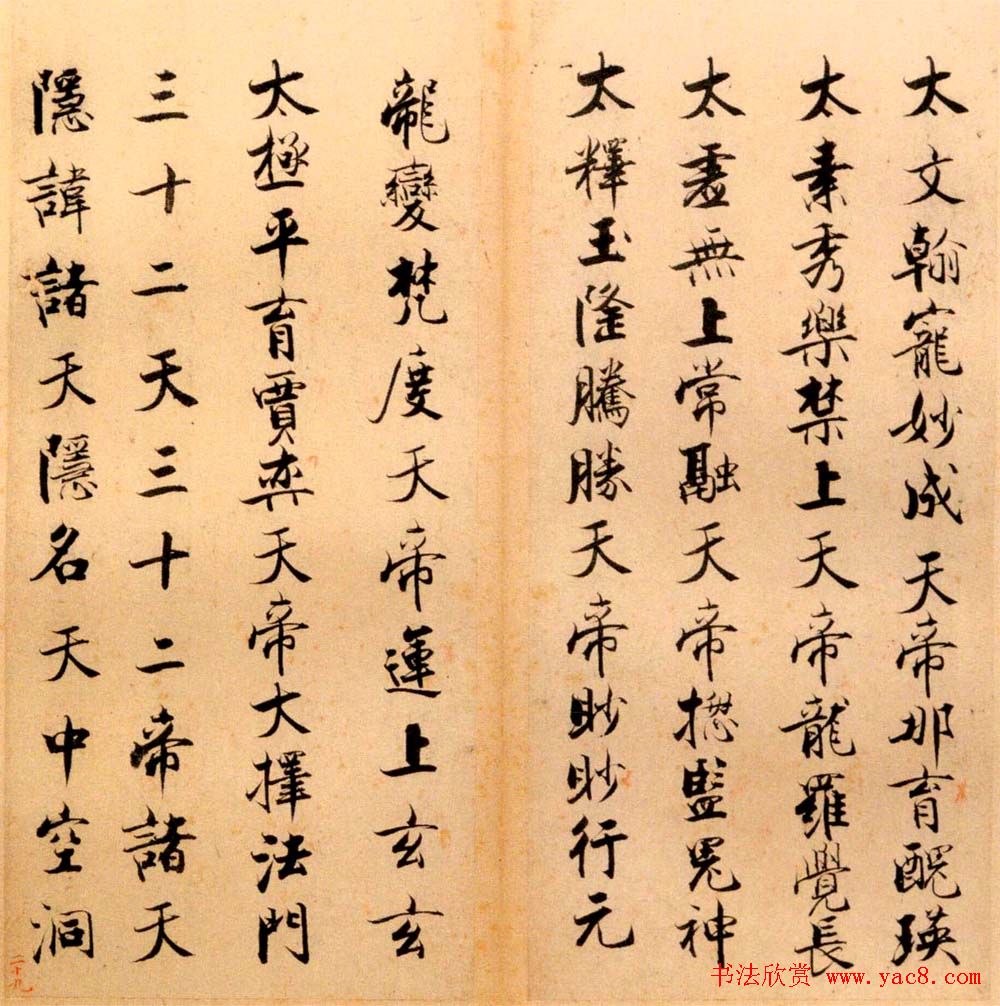 太文翰寵妙成天帝那育醜瑛
太素秀樂禁上天帝龍羅覺長
太虛無上常融天帝揔監鬼神
太釋玉隆騰勝天帝眇眇行元
龍變梵度天帝運上玄玄
太極平育賈奕天帝大擇法門
三十二天三十二帝諸天
隱諱諸天隱名天中空洞
二十九
书法欣赏 www.yac8.com